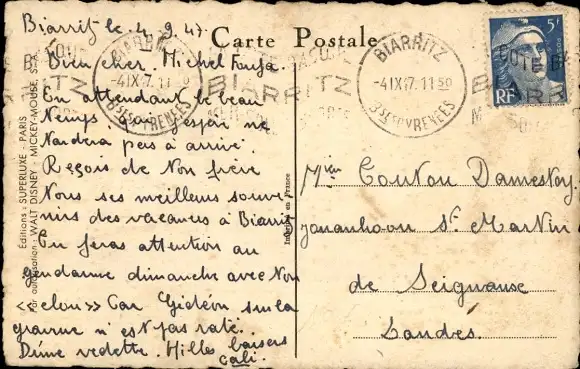 Biarritz le. 4. 9. 47.
Carte Postale
Bien cher. Michel
En attendant le beau
Temps. que j'espère ne
Tardera pas à arrivé.
Reçois de Ton frère
Tous ses meilleurs souve-
nirs des vacances à Biarritz
En feras attention au
gendarme dimanche avec Ton
«clou» Car Gédéon sur la
gravure n'est pas raté.
D'une vedette. Milles baisers
Editions : SUPERLUXE - PARIS
Par autorisation : WALT DISNEY - MICKEY-MOUSE, S. A.
Imprimé en France
BIARRITZ
-4 IX 47. 11 50
Bses PYRENEES
BIARRITZ
BIARRITZ
-4 IX 47. 11 50
Bses PYRENEES
5F
RF
St. Martin
de Seignanx
Landes.